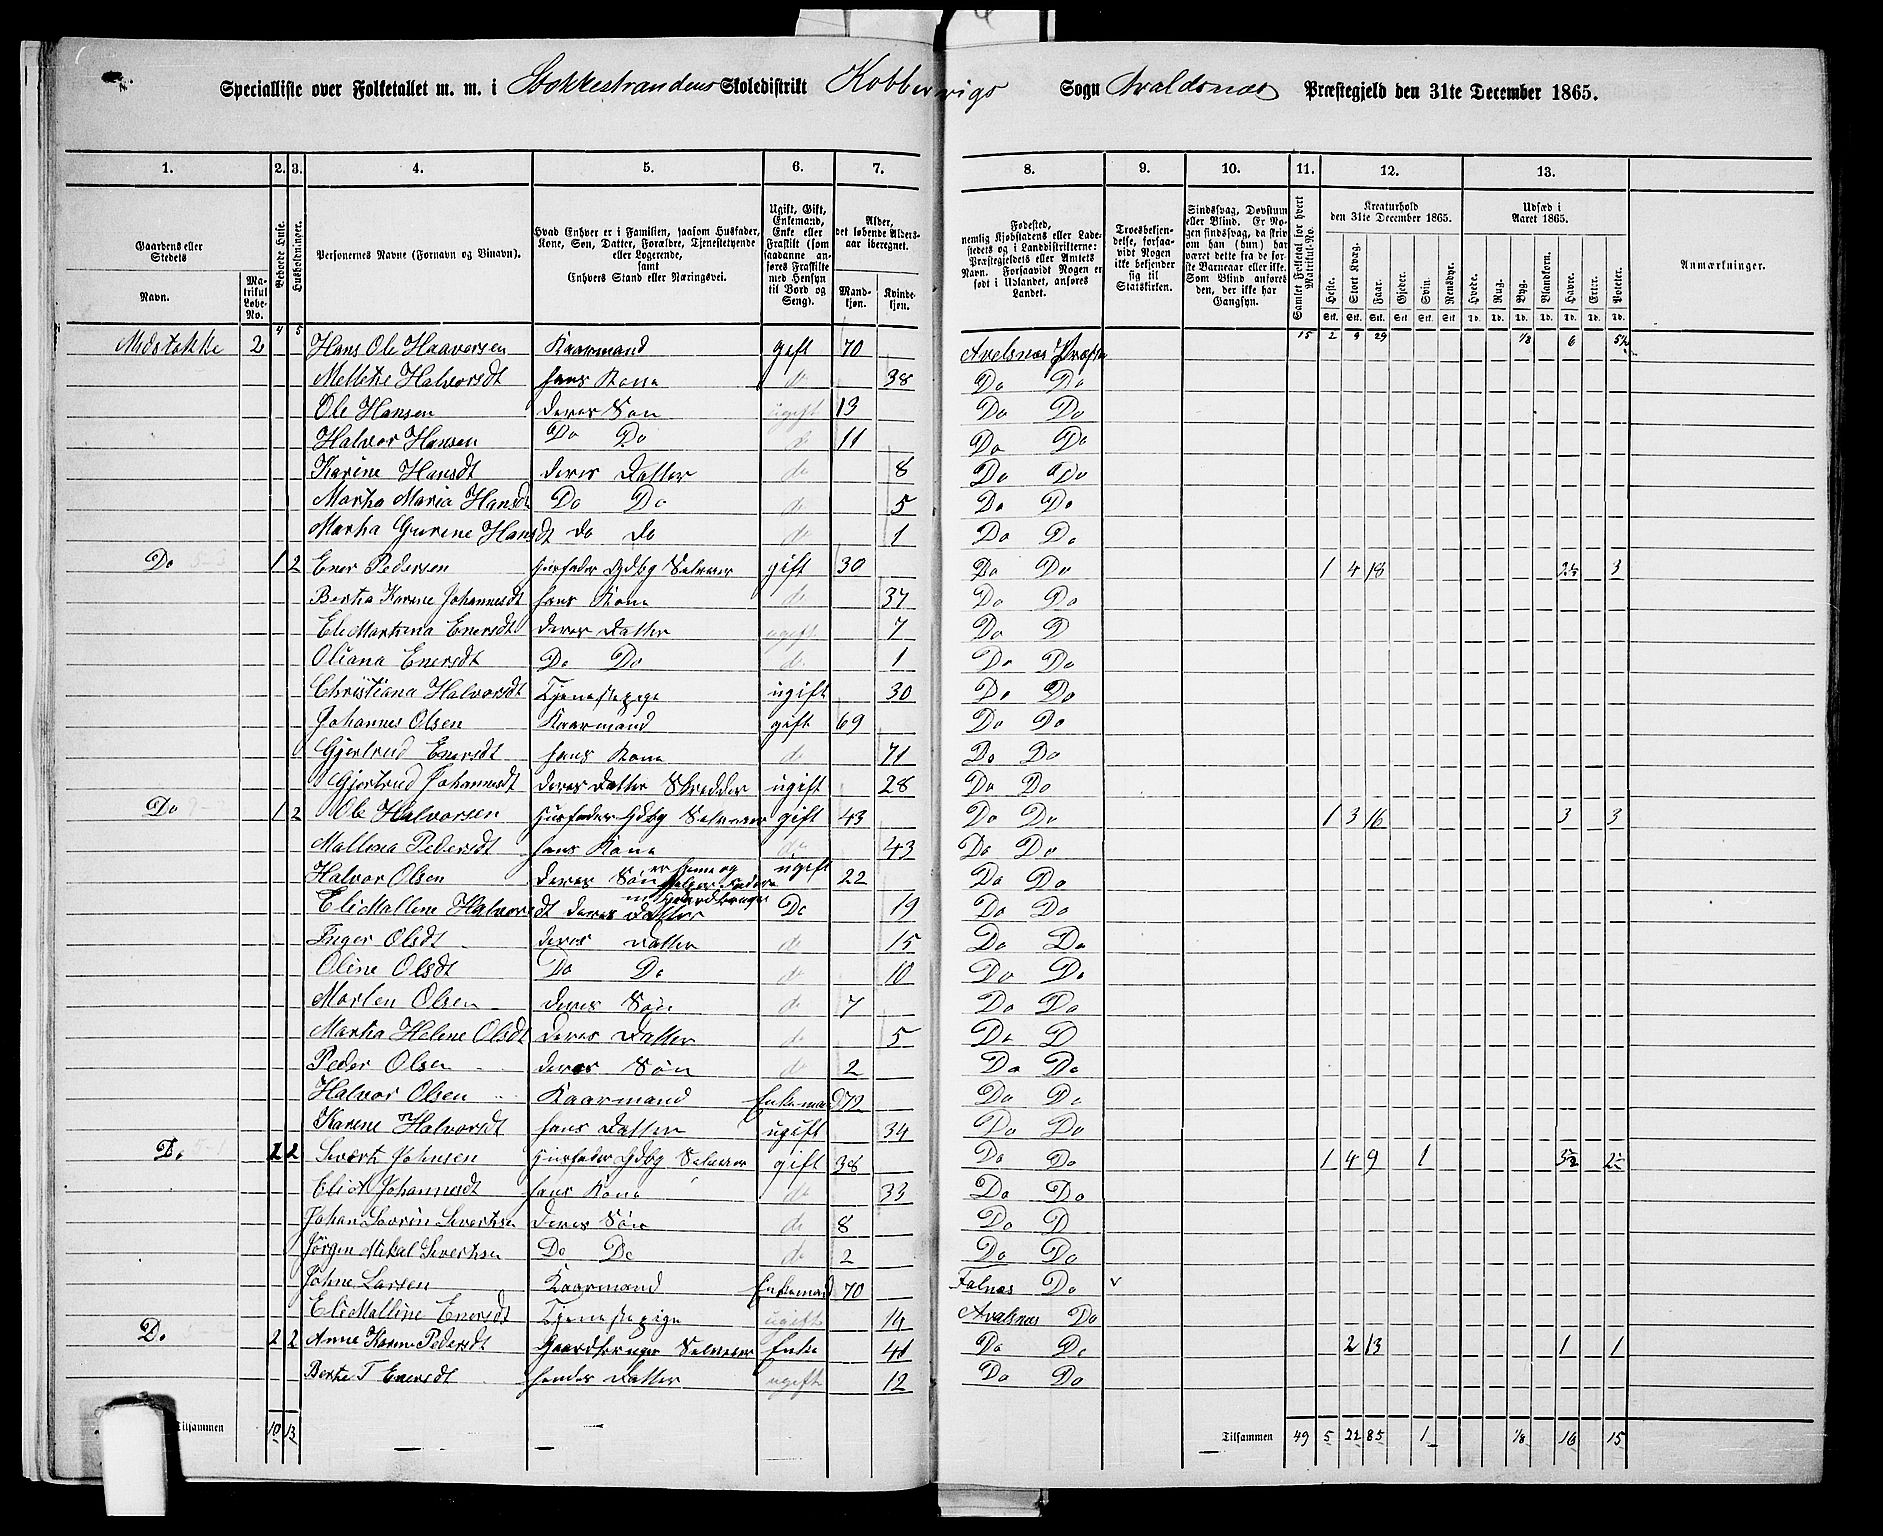 Specialliste over Folketallet m. m. i Stokkestrandens Skoledistrikt Kobbervigs Sogn Avaldsnæs Præstegjeld den 31te December 1865.
1. 2. 3. 4. 5. 6. 7. 8. 9. 10. 11. 12. 13.
Gaardens eller Stedets
Navn.
Matrikul Løbe-No.
Beboede Huse.
Husholdninger.
Personernes Navne (Fornavn og Tilnavn).
Hvad Enhver er i Familien, saasom Husfader, Kone, Søn, Datter, Forældre, Tjenestetyende eller Logerende, samt Enhvers Stand eller Næringsvei.
Ugift, Gift, Enkemand, Enke eller Fraskilt (som saadanne anføres Fraskilte med Hensyn til Bord og Seng).
Alder, det løbende Aldersaar iberegnet.
Mandkjøn.
Kvindekjøn.
Fødested, nemlig Kjøbstadens eller Ladestedets og i Landdistrikterne: Præstegjeldets eller Amtets Navn. Forsaavidt Nogen er født i Udlandet, anføres Landet.
Troesbekjendelse, forsaavidt Nogen ikke bekjender sig til Statskirken.
Sindssvag, Døvstum eller Blind. Er Nogen sindssvag, da skrives om han (hun) har været dette fra de første Barneaar eller ikke. Som Blind anføres den, der ikke har Gangsyn.
Samlet Folketal for hvert Matrikul-No.
Kreaturhold den 31te December 1865.
Heste. Stort Kvæg. Faar. Gjeder. Svin. Rensdyr.
Udsæd i Aaret 1865.
Hvede. Rug. Byg. Blandkorn. Havre. Erter. Poteter.
Anmærkninger.
Midstokke 2 4 5 Hans Ole Haavorsen Kaarmand gift 70 Avelsnæs Præst 15 2 9 29 1/8 6 5½
Mellene Halvorsdt hans Kone do 38 Do Do
Ole Hansen deres Søn ugift 13 Do Do
Halvor Hansen Do Do d 11 Do Do
Karine Hansdt deres Datter do 8 Do Do
Martha Maria Hansdt Do Do do 5 Do Do
Martha Gurene Hansdt do do do 1 Do Do
Do 1 2 Ener Pedersen Husfader Gdbg Selveier gift 30 Do Do 1 4 18 3
Bertha Karene Johannesdt hans Kone do 37 Do Do
Eli Martena Enersdt deres Datter ugift 7 Do D
Oliana Enersdt Do Do do 1 Do Do
Christiana Halvorsdt Tjenestepige ugift 30 Do Do
Johannes Olsen Kaarmand gift 69 Do Do
Gjertrud Enersdt hans Kone do 71 Do Do
Gjertrud Johannesdt deres Datter Skrædder ugift 28 Do Do
Do 1 2 Ole Halvorsen Husfader Gdbg Selveier gift 43 Do Do 1 3 16 3 3
Mallena Pedersdt hans Kone do 43 Do Do
Halvor Olsen deres Søn er hjeme og hjelper Faderen m Gaardbruget ugift 22 Do Do
Eli Mallene Halvorsdt deres Datter Do 19 Do Do
Inger Olsdt deres Datter do 15 Do Do
Oline Olsdt Do Do do 10 Do Do
Morten Olsen deres Søn do 7 Do Do
Martha Helene Olsdt deres Datter do 5 Do D
Peder Olsen deres Søn do 2 Do Do
Halvor Olsen Kaarmand Enkemand 72 Do Do
Karene Halvorsdt hans Datter ugift 34 Do Do
Do 1 2 Sivert Johnsen Husfader Gdbg Selveier gift 38 Do Do 1 4 9 1 3½ 2
Eli A Johannesdt hans Kone do 33 Do Do
Johan Severin Sivertsen deres Søn do 8 Do D
Jørgen Mikal Sivertsen Do Do do 2 Do Do
Johne Larsen Kaarmand Enkemand 70 Falnæs Do v
Eli Malline Enersdt Tjenestepige ugift 14 Avalsnæs Do
Do 2 2 Anne Karine Pedersdt Gaardbruger Selveier Enke 41 Do Do 2 13 1 1
Berthe T Enersdt hendes Datter ugift 12 Do Do
Tilsammen 10 13
Tilsammen 49 5 22 85 1 1/8 16 15